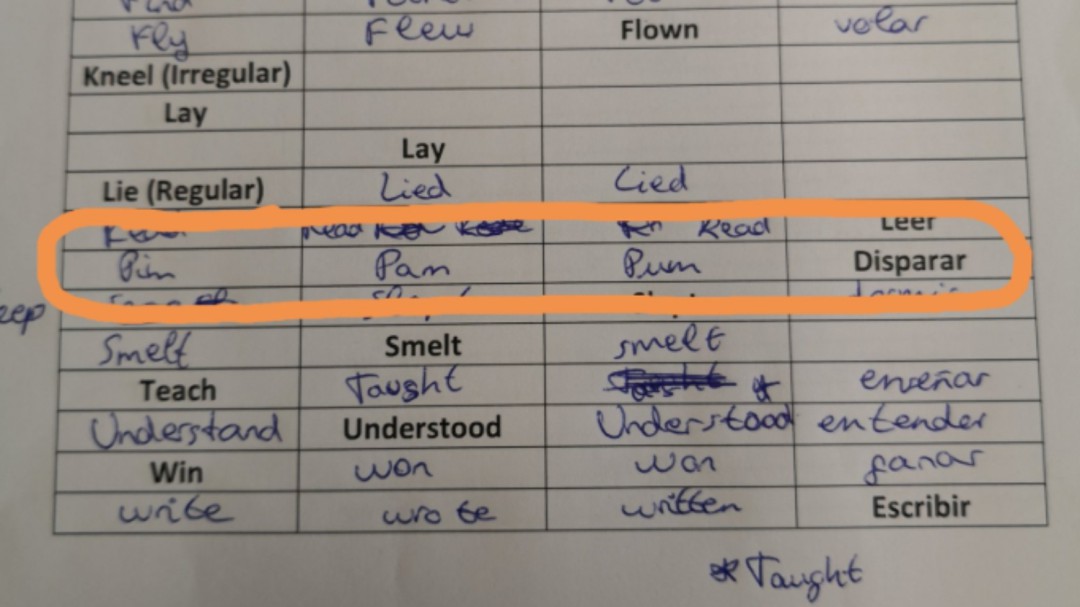 Fly Flew Flown volar
Kneel (Irregular)
Lay
Lay
Lie (Regular) Lied Lied
Read Read Leer
Pim Pam Pum Disparar
Smelt Smelt smelt
Teach Taught Taught * enseñar
Understand Understood Understood entender
Win won won ganar
write wrote written Escribir
* Taught